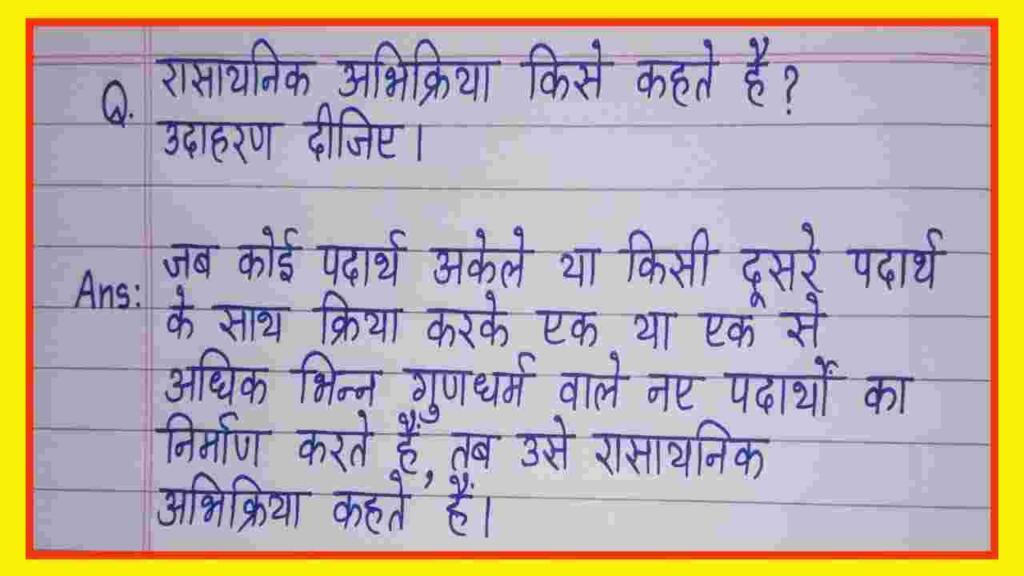 Q. रासायनिक अभिक्रिया किसे कहते है?
उदाहरण दीजिए।
Ans: जब कोई पदार्थ अकेले या किसी दूसरे पदार्थ
के साथ क्रिया करके एक या एक से
अधिक भिन्न गुणधर्म वाले नए पदार्थों का
निर्माण करते हैं, तब उसे रासायनिक
अभिक्रिया कहते हैं।